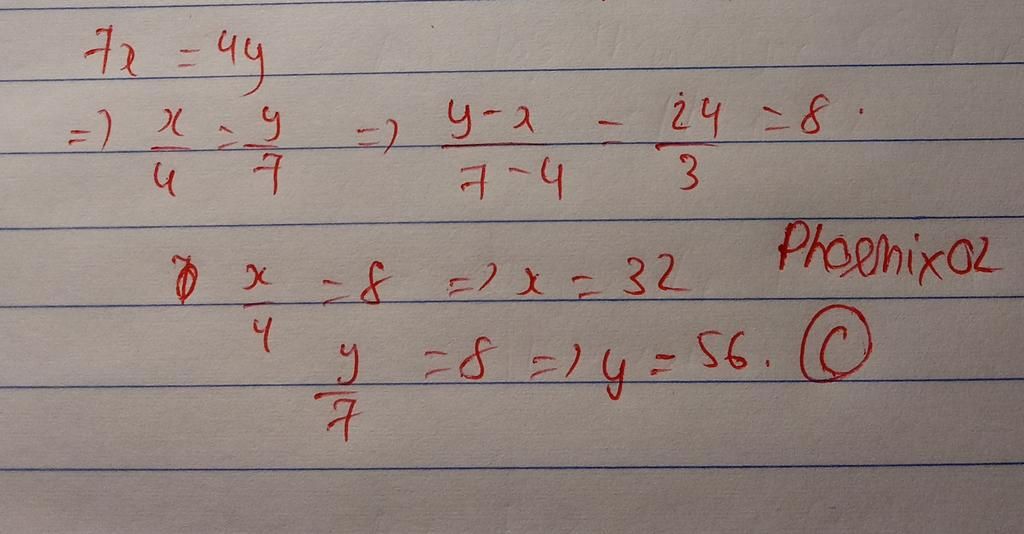 7x = 4y
=> x/4 = y/7 => y-x/7-4 = 24/3 = 8.
x/4 = 8 => x = 32 Phoenix02
y/7 = 8 => y = 56. C